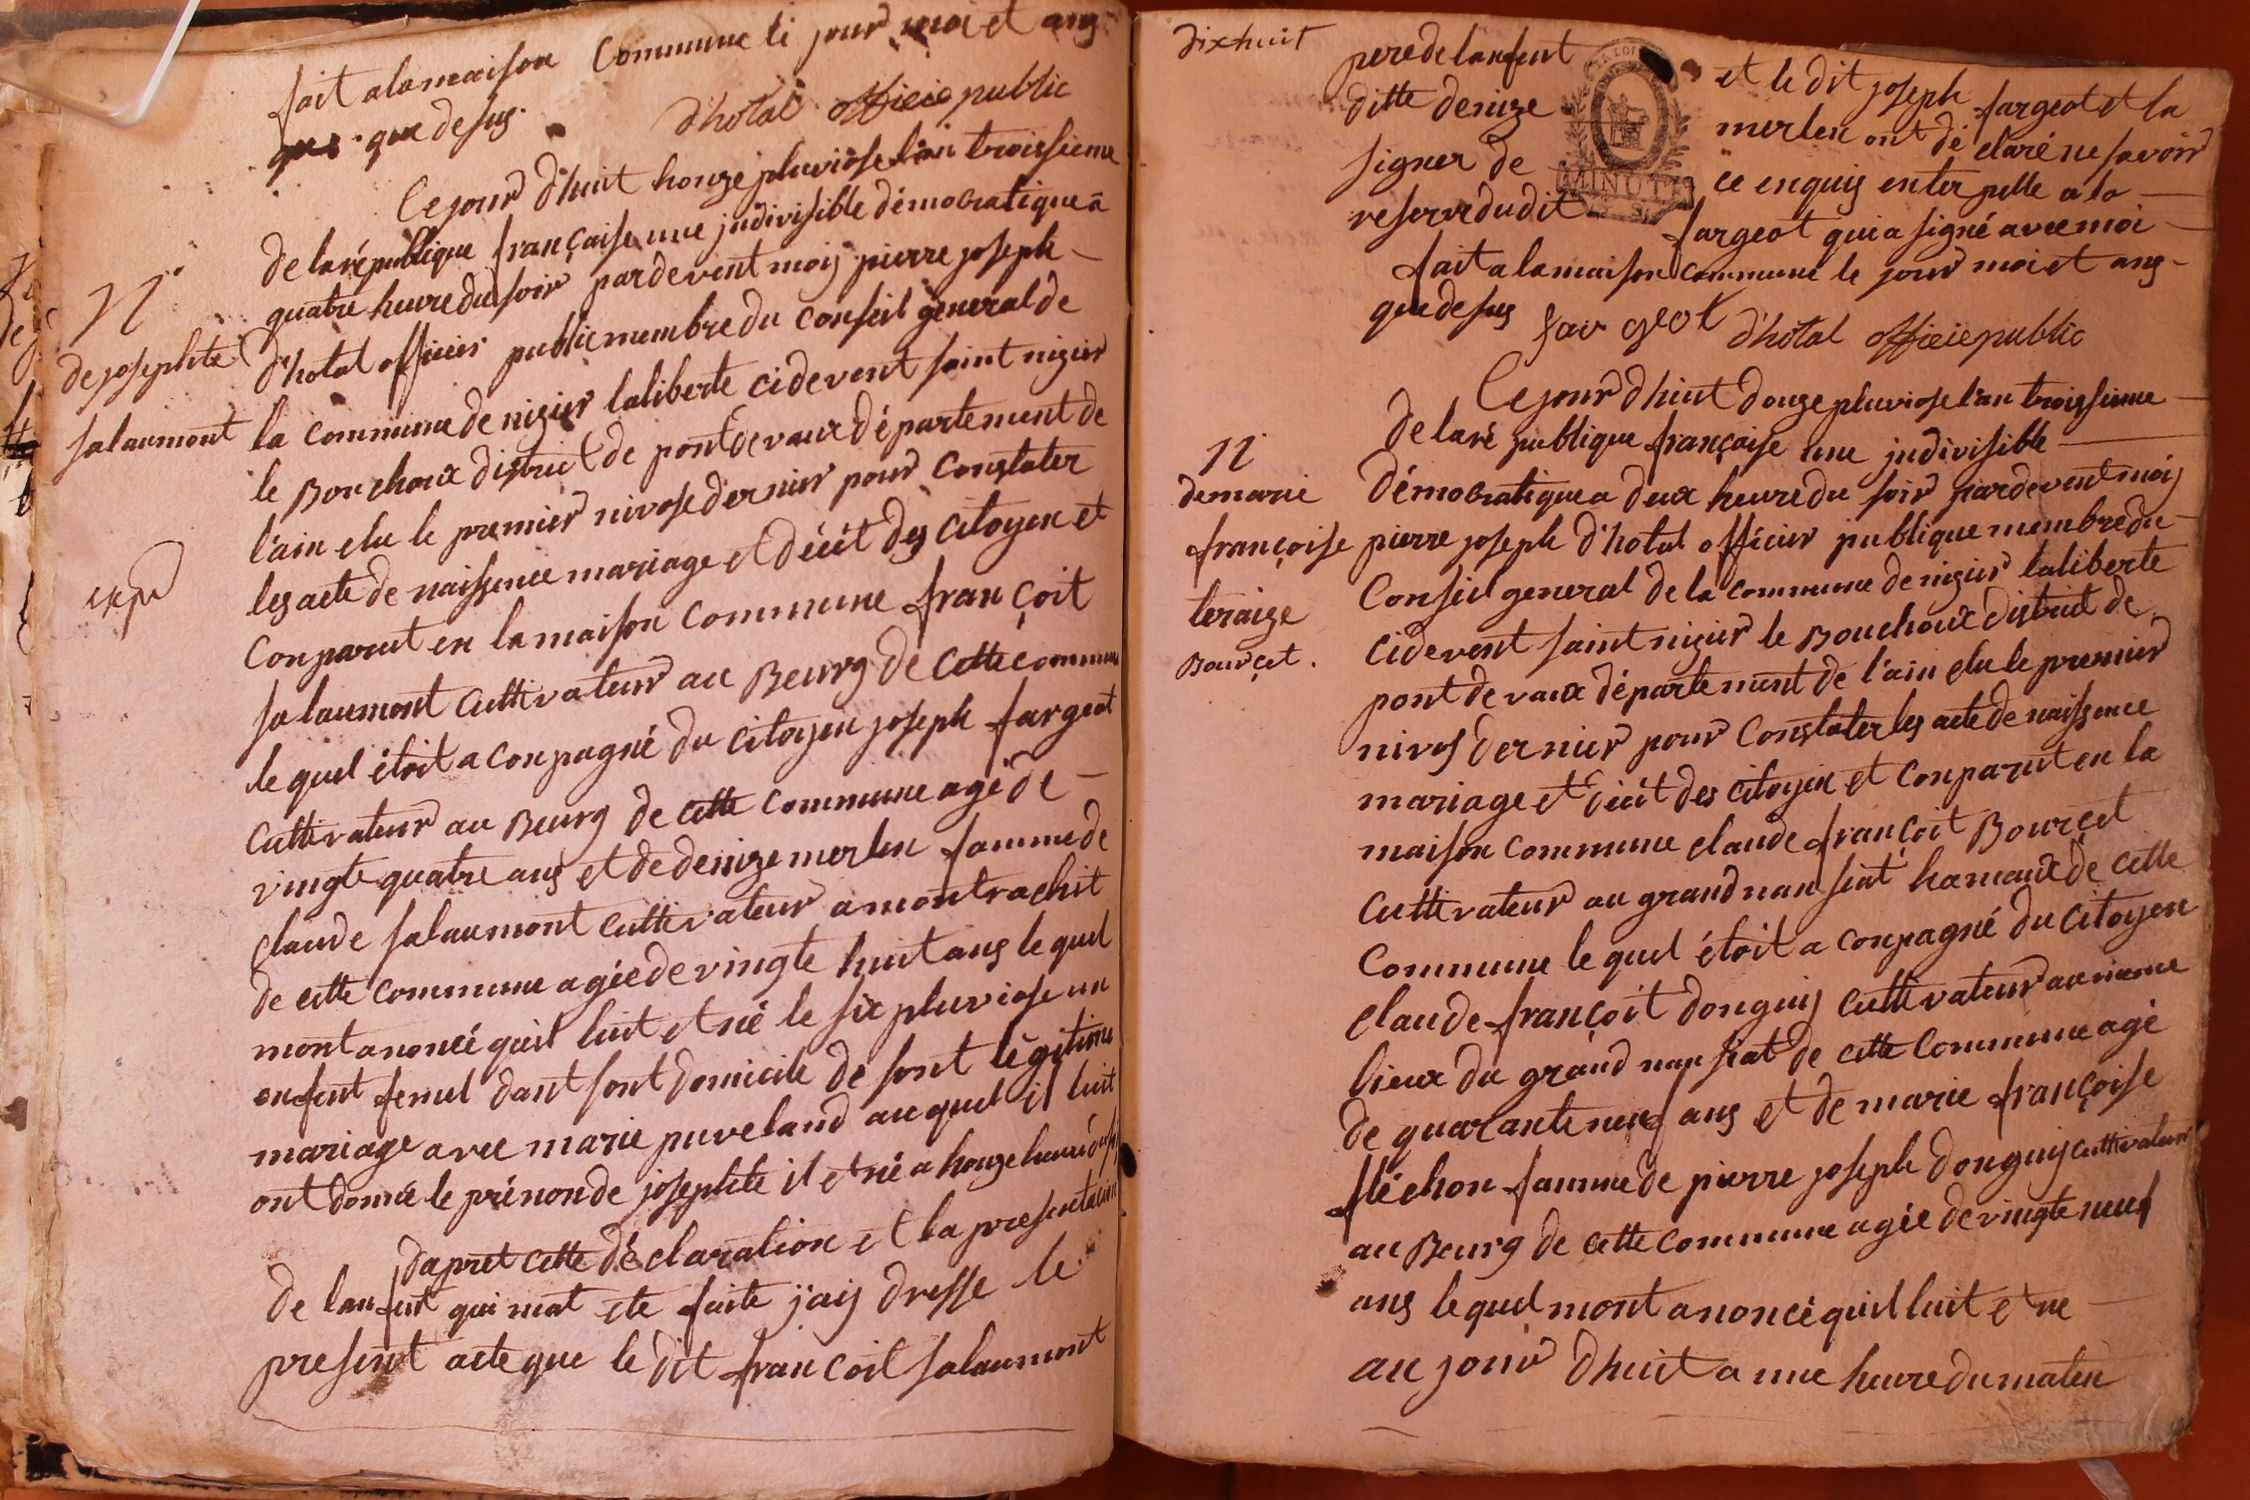 fait a la maison Commune le jour moi et ans
que desus. d'hotal officie public
Ce jour d'huit honze pluviose l'an troissieme
de la république française une jndivisible démocratique a
quatre heure du soir pardevent moij pierre joseph
N
de josephte
salaumont
d'hotal officier public membre du conseil general de
la commune de nizier laliberte cidevent saint nizier
le Bouchoux district de pont de vaux département de
l'ain elu le premier nivose dernier pour constater
les acte de naissence mariage et décét des citoyen et
conparut en la maison commune françoit
salaumont cultivateur au Beurg de cette commune
le quel étoit a conpagné du citoyen joseph fargeot
cultivateur au Beurg de cette commune agé de
vingte quatre ans et de denize merlen famme de
claude salaumont cultivateur a montrachit
de cette commune agée de vingte huit ans le quel
mont anoncé quil luit et né le six pluviose un
enfent femel dant sont domicile de sont légitime
mariage avec marie puveland au quel il luit
ont donné le prénon de josephte il et né a honze heure du
dapret cette déclaration et la presentation
de lanfent qui mat ete faite j'aij dresse le
present acte que le dit françoit salaumont
dixhuit
pere de lanfent et le dit joseph fargeot et la
ditte denize merlen ont dé claré ne savoir
signer de ce enquis enter pelle a la
MINUTE
reserve du dit fargeot qui a signé avec moi
fait a la maison commune le jour moi et ans
que desus fargeot d'hotal officie public
Ce jour d'huit douze pluviose l'an troissieme
de la ré publique française une jndivisible
N
de marie
françoise
teraize
Bourçet.
démocratique a deux heure du soir pardevent moij
pierre joseph d'hotal officier publique membre du
Conseil general de la commune de nizier laliberte
cidevent saint nizier le Bouchoux district de
pont de vaux département de l'ain elu le premier
nivos dernier pour Constater les acte de naissence
mariage et décét des citoyen et conparut en la
maison commune claude françoit Bourçet
cultivateur au grand nan siat hamaux de cette
commune le quel étoit a conpagné du citoyen
claude françoit donguij cultivateur au meme
lieux du grand nan siat de cette commune agé
de quarante neuf ans et de marie françoise
fléchon famme de pierre joseph donguij cultivateur
au Beurg de cette commune agée de vingte neuf
ans le quel mont anoncé quil luit et ne
au jour dhuit a une heure du maten